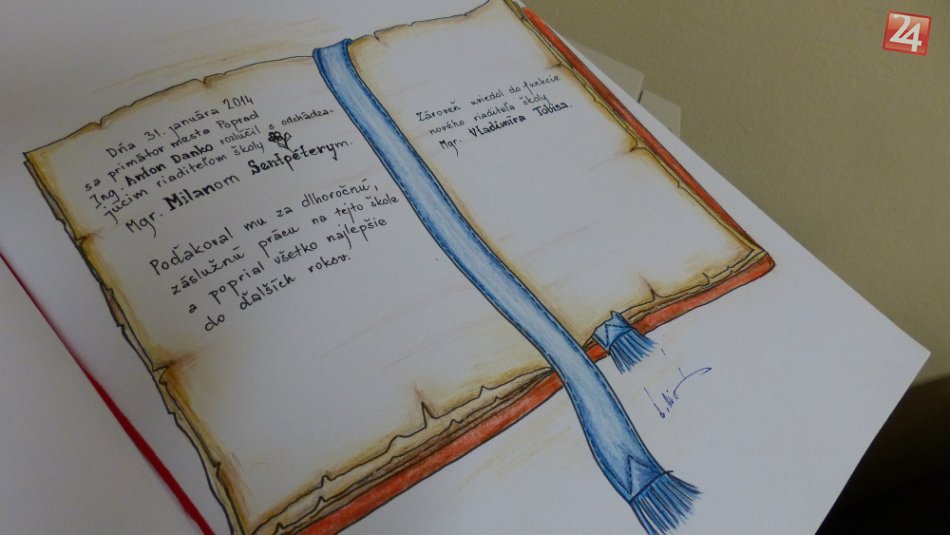 Dňa 31. januára 2014
sa primátor mesta Poprad
Ing. Anton Danko rozlúčil s odchádza-
júcim riaditeľom školy
Mgr. Milanom Sentpéterym.
Poďakoval mu za dlhoročnú,
záslužnú prácu na tejto škole
a poprial všetko najlepšie
do ďalších rokov.
Zároveň uviedol do funkcie
nového riaditeľa školy
Mgr. Vladimíra Tobisa.
24